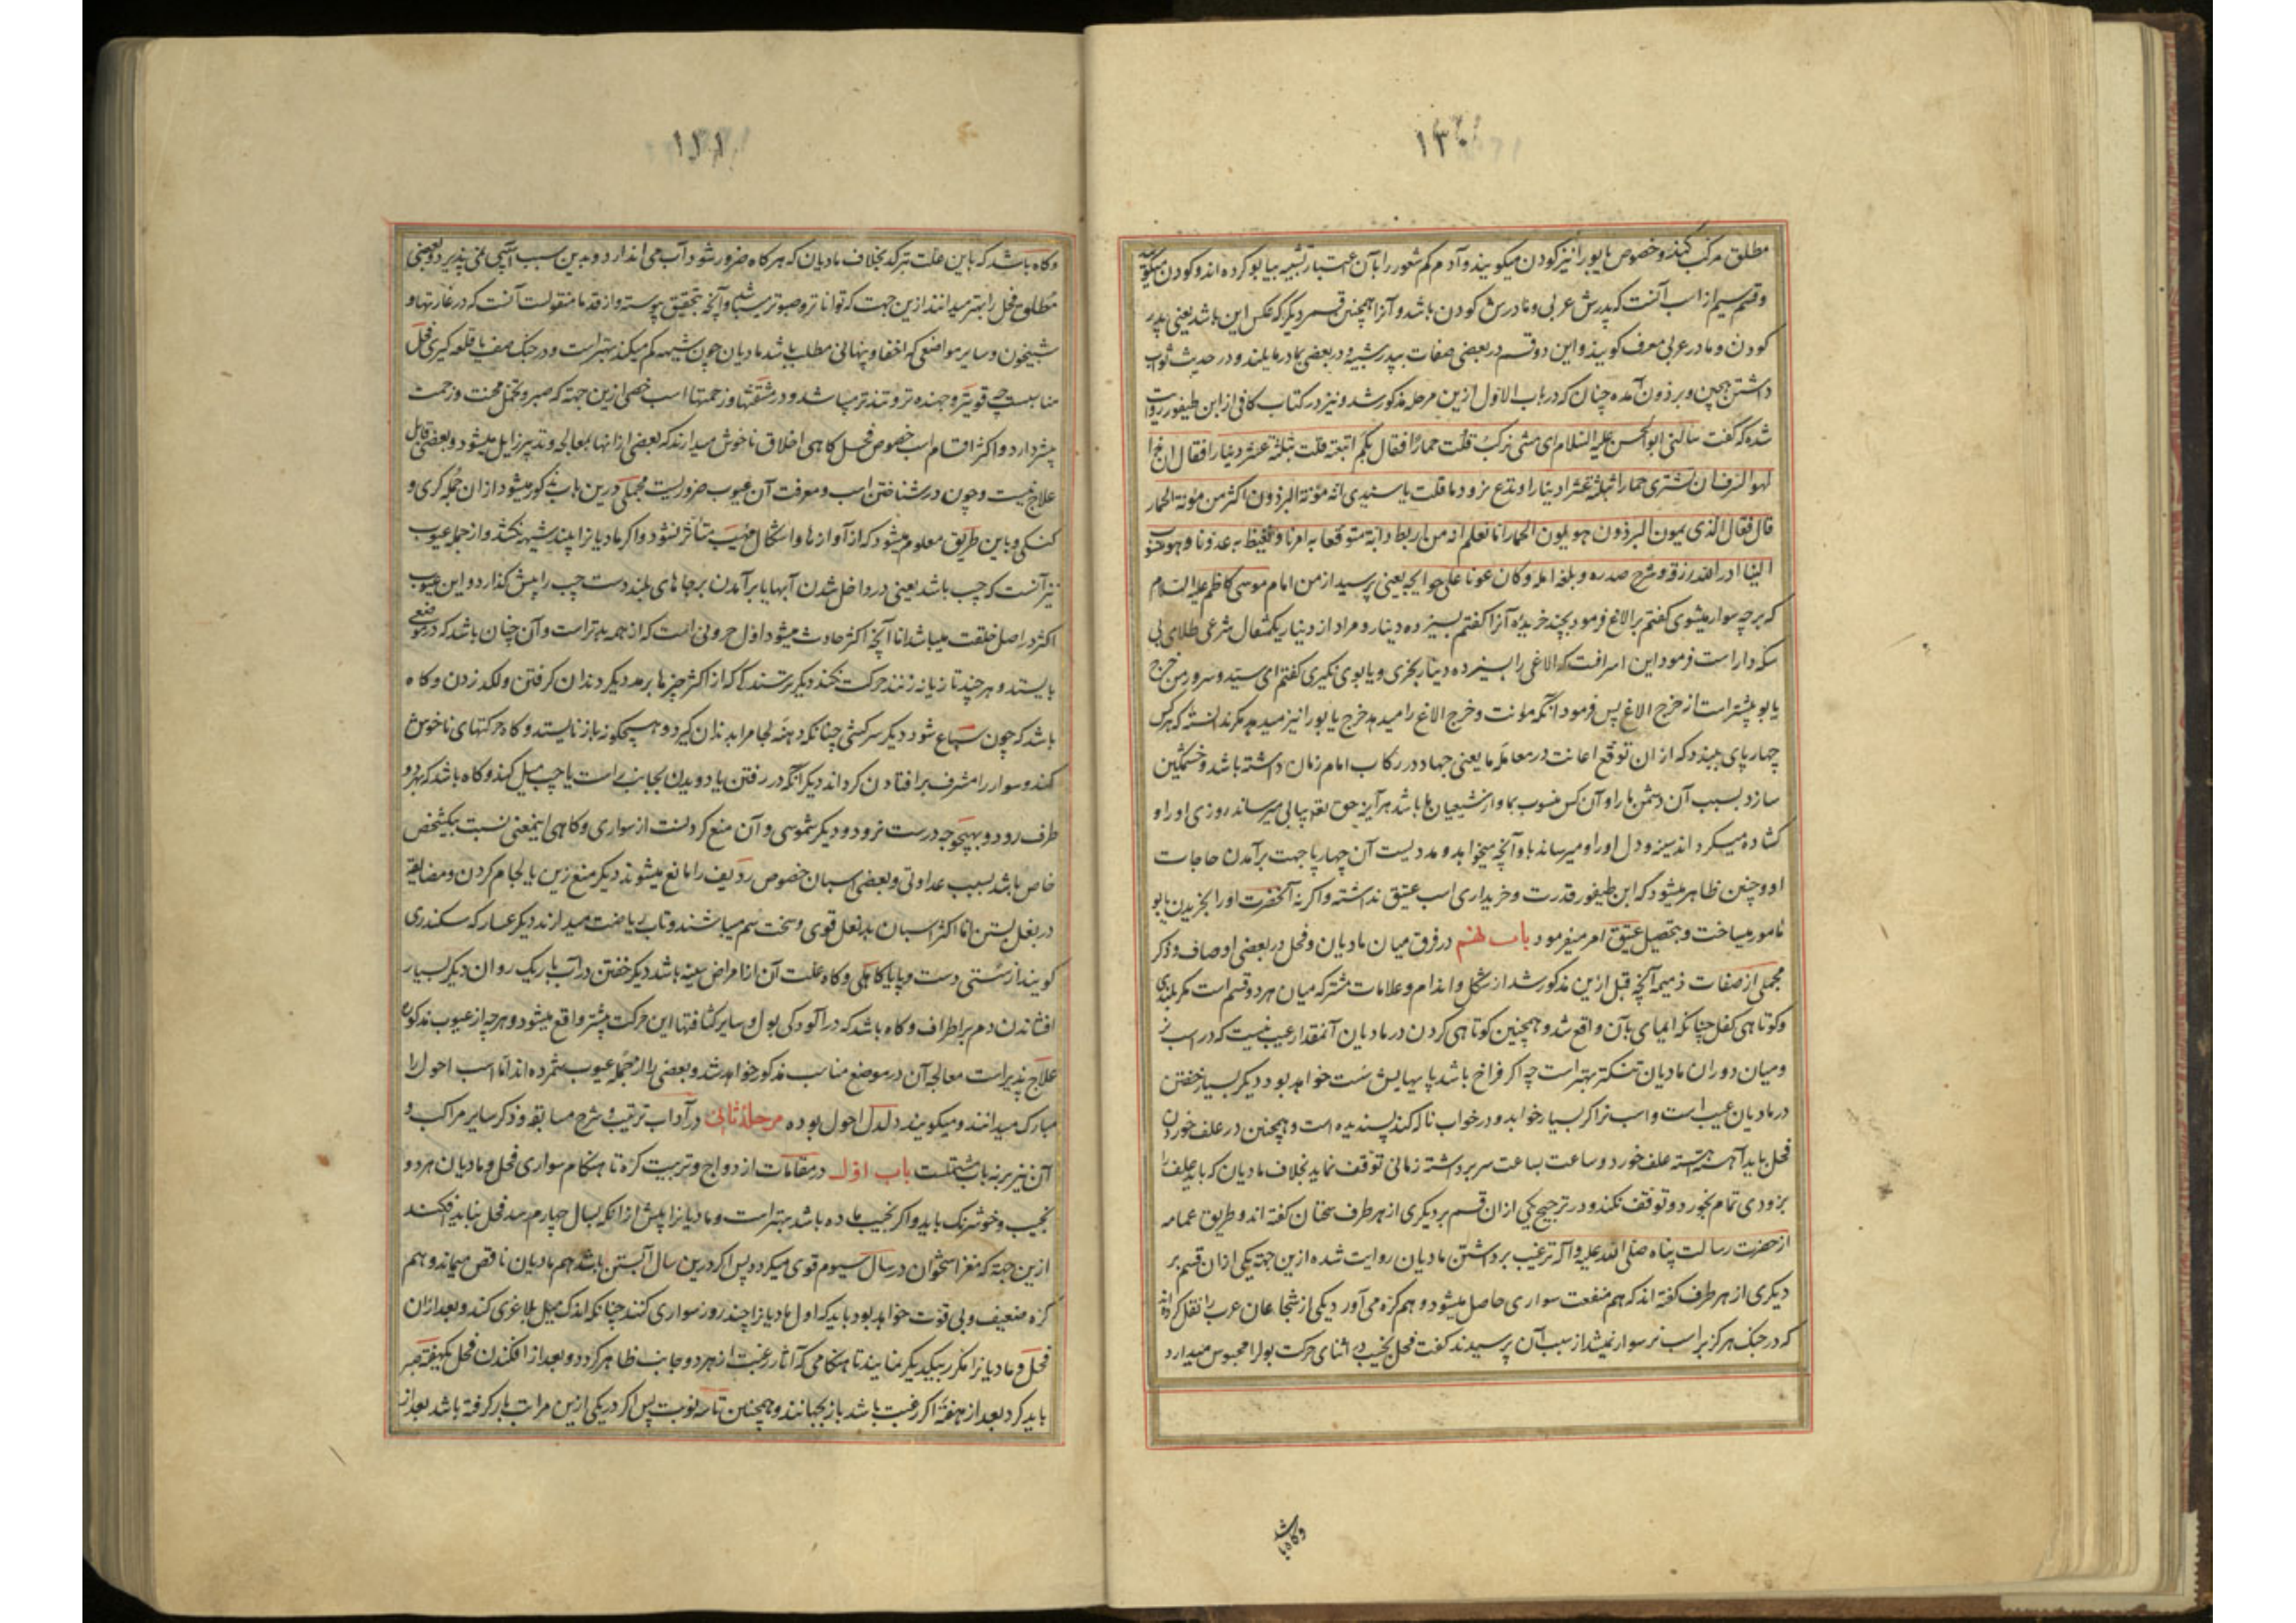 ۱۳۰
مطلق مرکب کنند و خصوص یابو را نیز کودن میکویند و آدم کم شعور را بآن اعتبار تشبیه بیابو کرده اند و کودن
و قسم سیم از اسب آنست که پدرش عربی و مادرش کودن باشد و آنرا هجین و قسم دیکر که عکس این باشد یعنی پدر
کودن و مادر عربی مقرف کویند و این دو قسم در بعضی صفات بپدر شبیه و در بعضی بمادر مایلند و در حدیث ثواب
داشتن هجین و برذون آمده چنان که در باب الاول ازین مرحله مذکور شد و نیز در کتاب کافی از ابن طیفور روایت
شده که گفت سألنی ابو الحسن علیه السلام ای شئ ترکب قلت حمارا فقال بکم ابتعته قلت بثلثة عشر دینارا فقال ان هذا
لهو السرف ان تشتری حمارا بثلثة عشر دینارا و تدع برذونا قلت یا سیدی ان مؤنة البرذون اکثر من مؤنة الحمار
قال فقال الذی یمون البرذون هو یمون الحمار اما تعلم انه من ارتبط دابة متوقعا به امرنا و یغیظ به عدونا و هو منسوب
الینا ادر الله رزقه و شرح صدره و بلغه امله و کان عونا علی حوایجه یعنی پرسید از من امام موسی کاظم علیه السلام
که بر چه سوار میشوی کفتم بر الاغ فرمود بچند خریدۀ آنرا کفتم بسیزده دینار و مراد از دینار یکمثقال شرعی طلای بی
سکه دار است فرمود این اسرافست که الاغی را بسیزده دینار بخری و یابوی نکیری کفتم ای سید و سرور من خرج
یابو بیشتر است از خرج الاغ پس فرمود آنکه مؤنت و خرج الاغ را میدهد خرج یابو را نیز میدهد مکر ندانسته که هرکس
چهار پای ببندد که از ان توقع اعانت در معامله ما یعنی جهاد در رکاب امام زمان داشته باشد و خشمکین
سازد بسبب آن دشمن ما را و آن کس منسوب بما و از شیعیان ما باشد هر آینه حق تعالی میرساند روزی او را و
کشاده میکرداند سینه و دل او را و میرساند باو آنچه میخواهد و مددیست آن چهارپا جهت برآمدن حاجات
او و چنین ظاهر میشود که ابن طیفور قدرت و خریداری اسب عتیق نداشته و اکرنه آنحضرت او را بخریدن یابو
مامور میساخت و بتحصیل عتیق امر میفرمود باب نهم در فرق میان مادیان و فحل در بعضی اوصاف و ذکر
مجملی از صفات ذمیمه آنچه قبل ازین مذکور شد از شکل و اندام و علامات مشترکه میان هر دو قسم است مکر بلندی
و کوتاهی کفل چنانکه ایمای بآن واقع شد و همچنین کوتاهی کردن در مادیان آنمقدار عیب نیست که در اسب نر
و میان دوران مادیان تنکتر بهتر است چه اکر فراخ باشد پا بهایش سست خواهد بود دیکر بسیار خفتن
در مادیان عیب است و اسب نر اکر بسیار خوابد و در خواب ناله کند پسندیده است و همچنین در علف خوردن
فحل باید آهسته آهسته علف خورد و ساعت بساعت سر برداشته زمانی توقف نماید بخلاف مادیان که باید علف را
بزودی تمام بخورد و توقف نکند و در ترجیح یکی از ان قسم بر دیکری از هر طرف سخنان کفته اند و طریق عمامه
از حضرت رسالت پناه صلی الله علیه و آله ترغیب بر داشتن مادیان روایت شده ازین جهة یکی از ان قسم بر
دیکری از هر طرف کفته اند که هم منفعت سواری حاصل میشود و هم کره می آورد یکی از شجاعان عرب را نقل کرده اند
که در جنک هرکز بر اسب نر سوار نمیشد از سبب آن پرسیدند کفت فحل نجیب در اثنای حرکت بول را محبوس میدارد
وکاه باشد
۱۳۱
وکاه باشد که باین علت بترکد بخلاف مادیان که هرکاه ضرور شود آب می اندازد و بدین سبب آسیبی نمی پذیرد و بعضی
مطلق فحل را بهتر میدانند ازین جهت که تواناتر و صبورتر میباشد و آنچه بتحقیق پیوسته و از قدما منقولست آنست که در غارتها و
شبیخون و سایر مواضعی که اخفا و پنهانی مطلب باشد مادیان چون شیهه کم میکند بهتر است و در جنک صف یا قلعه کیری فحل
مناسبست چه قویتر و جهنده تر و تندتر میباشد و در مشقتها و زحمتها اسب خصی ازین جهة که صبر و تحمل محنت و زحمت
بیشتر دارد و اکثر اقسام اسب خصوص فحل کاهی اخلاق ناخوش میدارند که بعضی از انها بمعالجه و تدبیر زایل میشود و بعضی قابل
علاج نیست و چون در شناختن اسب و معرفت آن عیوب ضروریست مجملی درین باب مذکور میشود از ان جمله کری و
کنکی و باین طریق معلوم میشود که از آوازها و اشکال مهیب متأثر نشود و اکر مادیانرا بیند شیهه نکشد و از جمله عیوب
نیز آنست که چب باشد یعنی در داخل شدن آبها یا برآمدن برجاهای بلند دست چب را پیش کذارد و این عیوب
اکثر در اصل خلقت میباشد اما آنچه اکثر حادث میشود اول حرونی است که از همه بدتر است و آن چنان باشد که در موضعی
بایستد و هر چند تازیانه زنند حرکت نکند دیکر ترسندکی که از اکثر چیزها برمد دیکر دندان کرفتن و لکد زدن و کاه
باشد که چون سباع شود دیکر سرکشی چنانکه دهنه لجام را بدندان کیرد و بهیچکونه باز نایستد و کاه حرکتهای ناخوش
کند و سوار را مشرف بر افتادن کرداند دیکر آنکه در رفتن یا دویدن بجانب راست یا چب میل کند و کاه باشد که بهر دو
طرف رود و بهیچوجه درست نرود و دیکر شموسی و آن منع کردنست از سواری و کاهی اینمعنی نسبت بیکشخص
خاص باشد بسبب عداوتی و بعضی اسبان خصوص ردیف را مانع میشوند دیکر منع زین یا لجام کردن و مضایقه
در نعل بستن اما اکثر اسبان بدنعل قوی و سخت سم میباشند و تاب ریاضت میدارند دیکر عسار که سکندری
کویند از سستی دست و پا یا کاهلی و کاه علت آن از امراض سینه باشد دیکر خفتن در آب باریک روان دیکر بسیار
افشاندن دم بر اطراف و کاه باشد که در آلودکی بول و سایر کثافتها این حرکت بیشتر واقع میشود و هرچه از عیوب مذکوره
علاج پذیر است معالجه آن در موضع مناسب مذکور خواهد شد و بعضی را از جمله عیوب شمرده اند اما اسب احول را
مبارک میدانند و میکویند دلدل احول بوده مرحله ثانی در آداب ترتیب و شرح مسابقه و ذکر سایر مراکب و
آن نیز بر نه باب مشتملست باب اول در مقامات ازدواج و تربیت کره تا هنکام سواری فحل و مادیان هر دو
نجیب و خوشرنک باید و اکر نجیب ماده باشد بهتر است و مادیانرا پیش از انکه بسال چهارم رسد فحل نباید افکند
ازین جهة که مغز استخوان در سال سیوم قوی میکردد پس اکر درین سال آبستن باشد هم مادیان ناقص میماند و هم
کره ضعیف و بی قوت خواهد بود باید که اول مادیانرا چند روز سواری کنند چنانکه اندک میل بلاغری کند و بعد از ان
فحل و مادیانرا مکرر بیکدیکر نمایند تا هنکامی که آثار رغبت از هر دو جانب ظاهر کردد و بعد از افکندن فحل یکهفته صبر
باید کرد بعد از هفته اکر رغبت باشد باز بجهانند و همچنین تا سه نوبت پس اکر در یکی ازین مراتب بار کرفته باشد بعد از